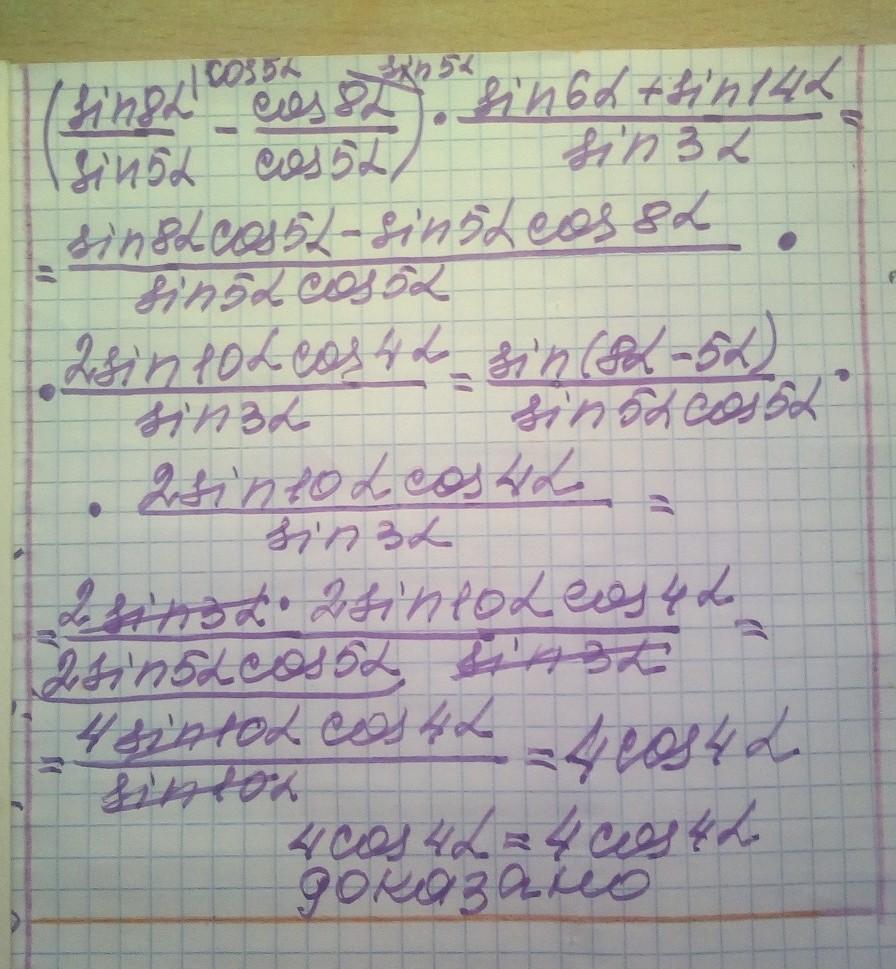 (sin8α |cos5α / sin5α - cos8α \sin5α / cos5α) · (sin6α + sin14α) / sin3α =
= (sin8αcos5α - sin5αcos8α) / (sin5αcos5α) ·
· (2sin10αcos4α) / sin3α = sin(8α-5α) / (sin5αcos5α) ·
· (2sin10αcos4α) / sin3α =
= (2sin3α · 2sin10αcos4α) / (2sin5αcos5α sin3α) =
= (4sin10αcos4α) / sin10α = 4cos4α
4cos4α = 4cos4α
доказано